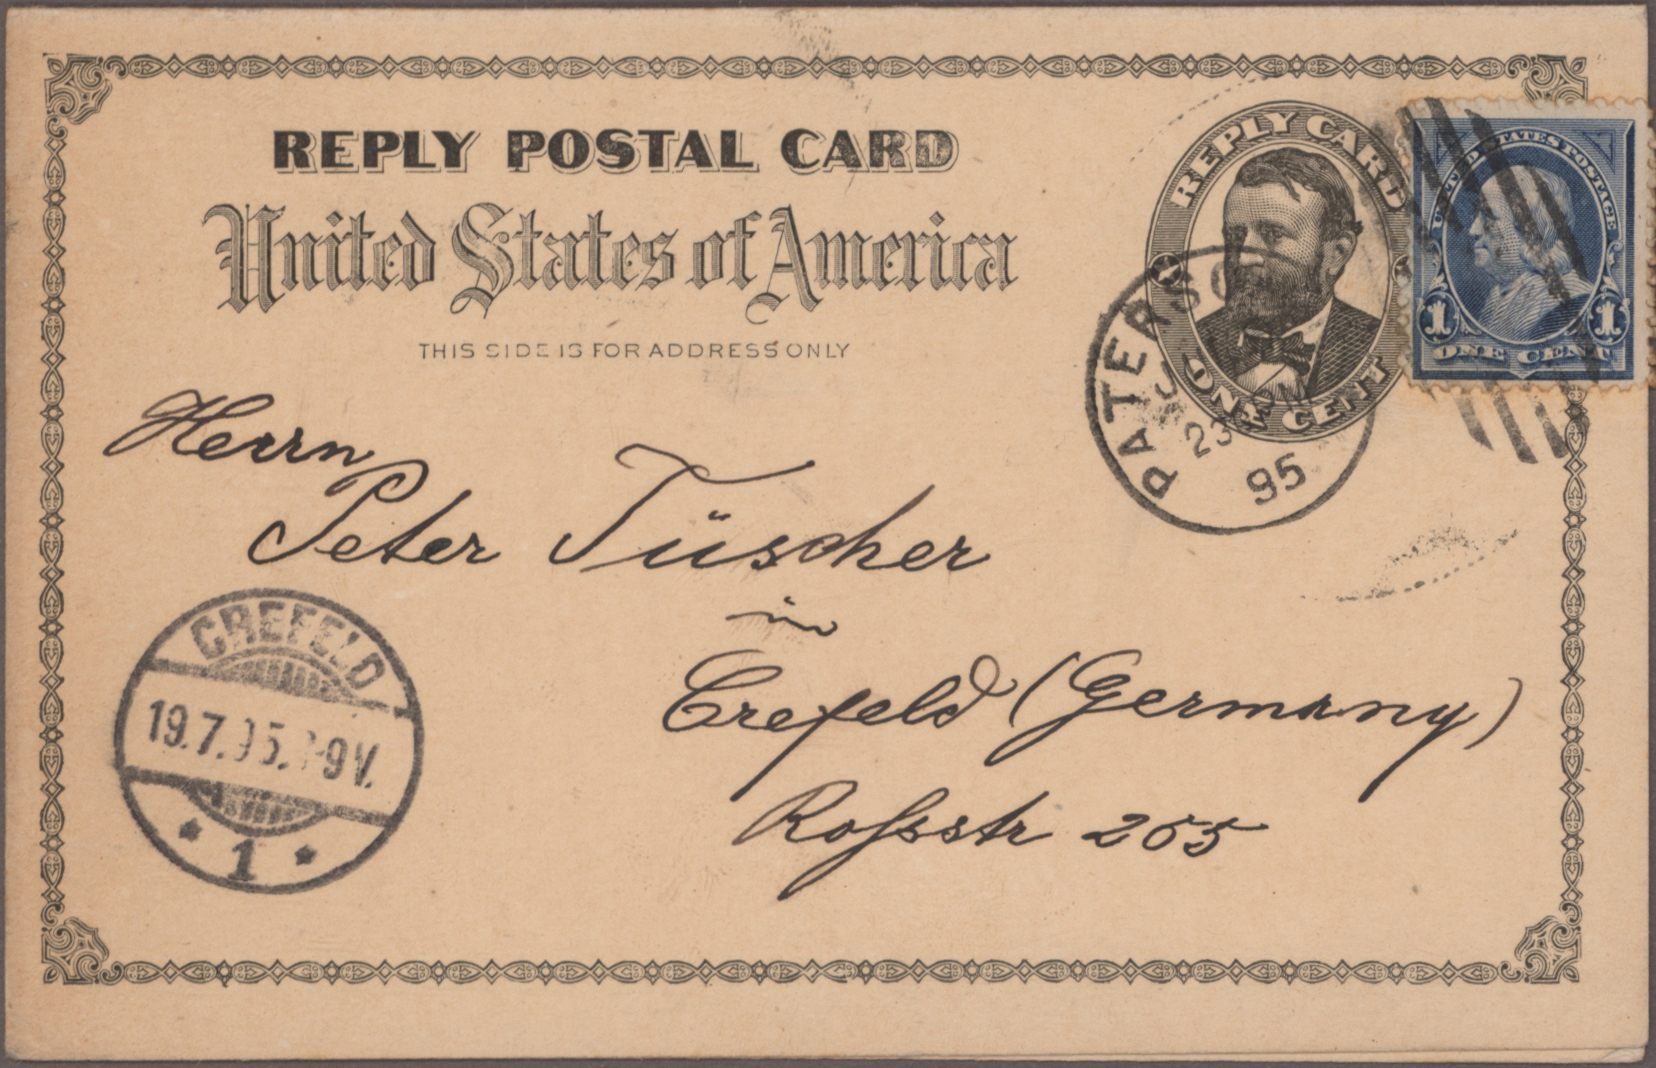 REPLY POSTAL CARD
United States of America
THIS SIDE IS FOR ADDRESS ONLY
REPLY CARD
ONE CENT
UNITED STATES POSTAGE
1 1
ONE CENT
PATERSO
23
95
Herrn
Peter Tüscher
in
Crefeld (Germany)
Roßsstr 265
CREFELD
19.7.95. 9V.
1